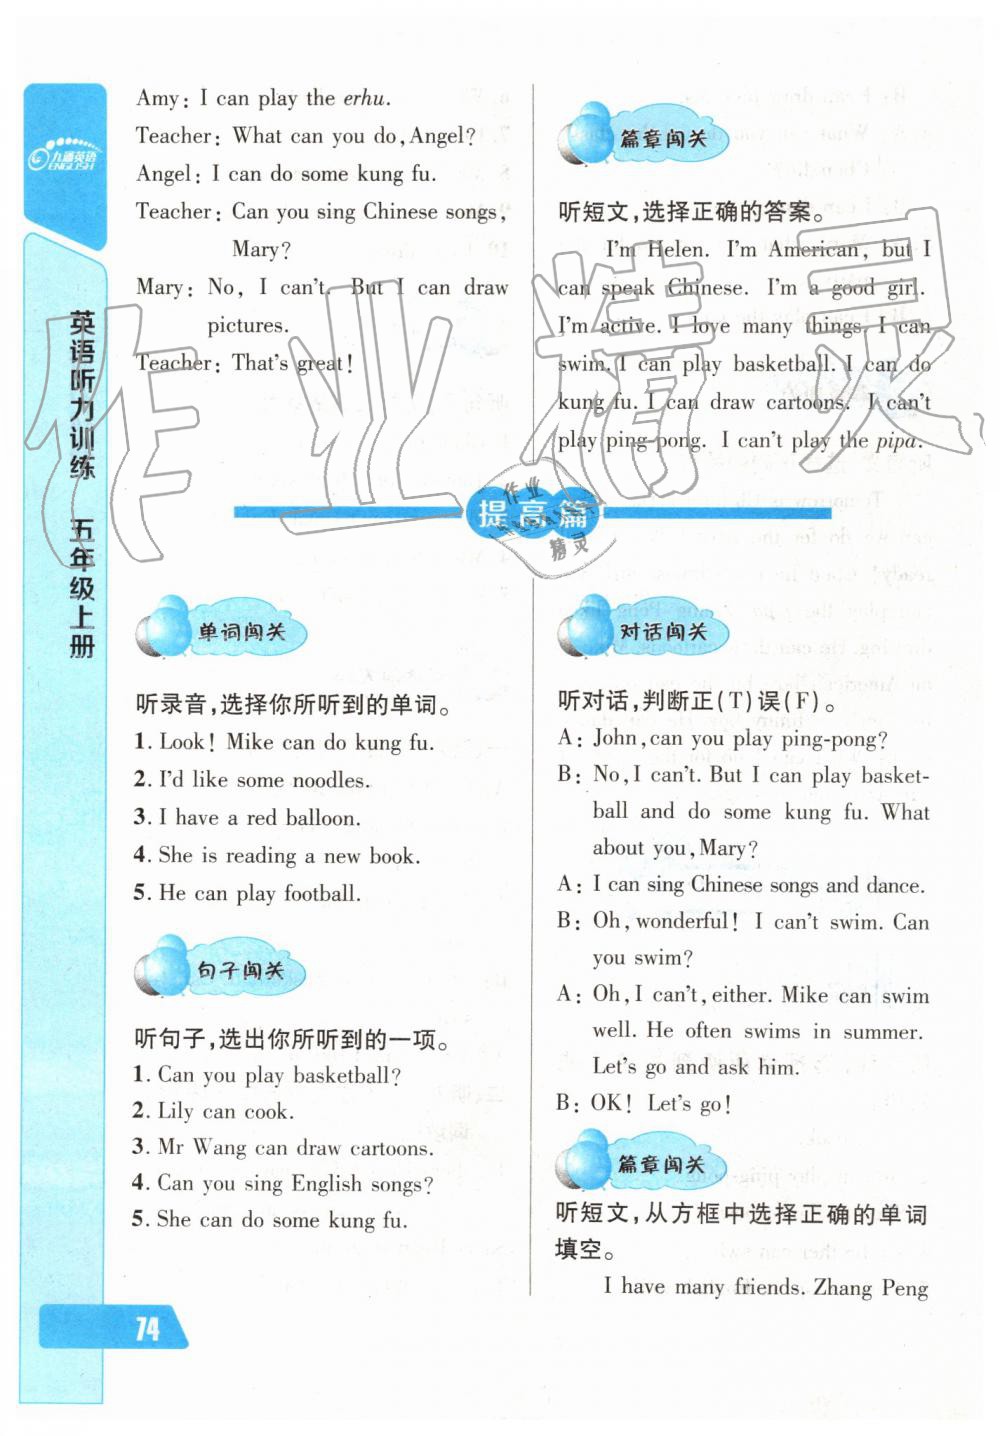 九通英语
ENGLISH
英语听力训练 五年级上册
Amy: I can play the erhu.
Teacher: What can you do, Angel?
Angel: I can do some kung fu.
Teacher: Can you sing Chinese songs,
Mary?
Mary: No, I can't. But I can draw
pictures.
Teacher: That's great!
篇章闯关
听短文,选择正确的答案。
I'm Helen. I'm American, but I
can speak Chinese. I'm a good girl.
I'm active. I love many things. I can
swim. I can play basketball. I can do
kung fu. I can draw cartoons. I can't
play ping-pong. I can't play the pipa.
作业精灵
提高篇
作业
精灵
单词闯关
听录音,选择你所听到的单词。
1. Look! Mike can do kung fu.
2. I'd like some noodles.
3. I have a red balloon.
4. She is reading a new book.
5. He can play football.
句子闯关
听句子,选出你所听到的一项。
1. Can you play basketball?
2. Lily can cook.
3. Mr Wang can draw cartoons.
4. Can you sing English songs?
5. She can do some kung fu.
对话闯关
听对话,判断正(T)误(F)。
A: John, can you play ping-pong?
B: No, I can't. But I can play basket-
ball and do some kung fu. What
about you, Mary?
A: I can sing Chinese songs and dance.
B: Oh, wonderful! I can't swim. Can
you swim?
A: Oh, I can't, either. Mike can swim
well. He often swims in summer.
Let's go and ask him.
B: OK! Let's go!
篇章闯关
听短文,从方框中选择正确的单词
填空。
I have many friends. Zhang Peng
74